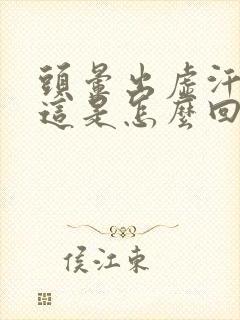 頭暈出虛汗
這是怎麼回
侯江東